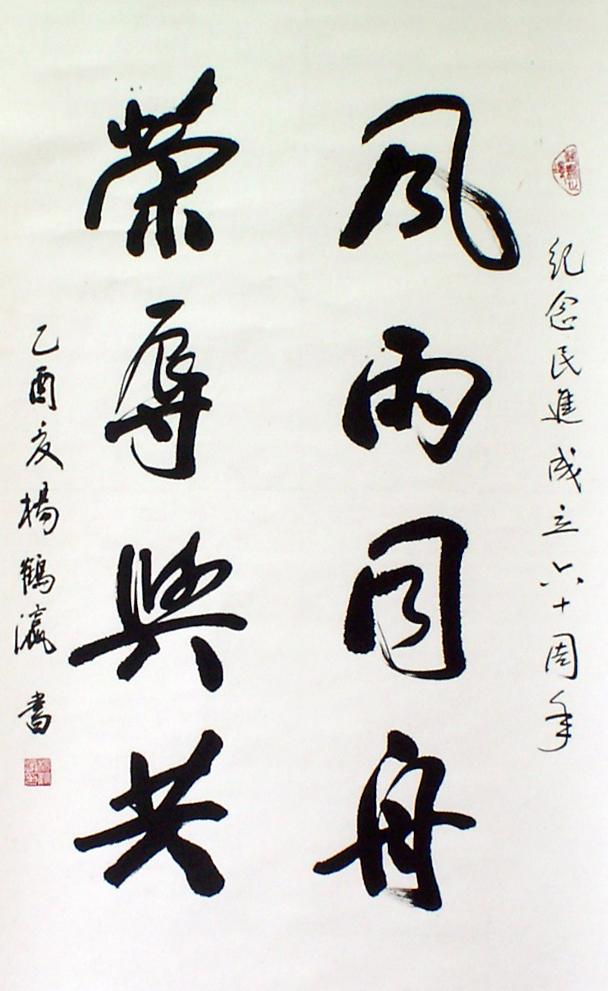 紀念民進成立六十周年
風雨同舟
榮辱與共
乙酉夏楊鶴瀛書